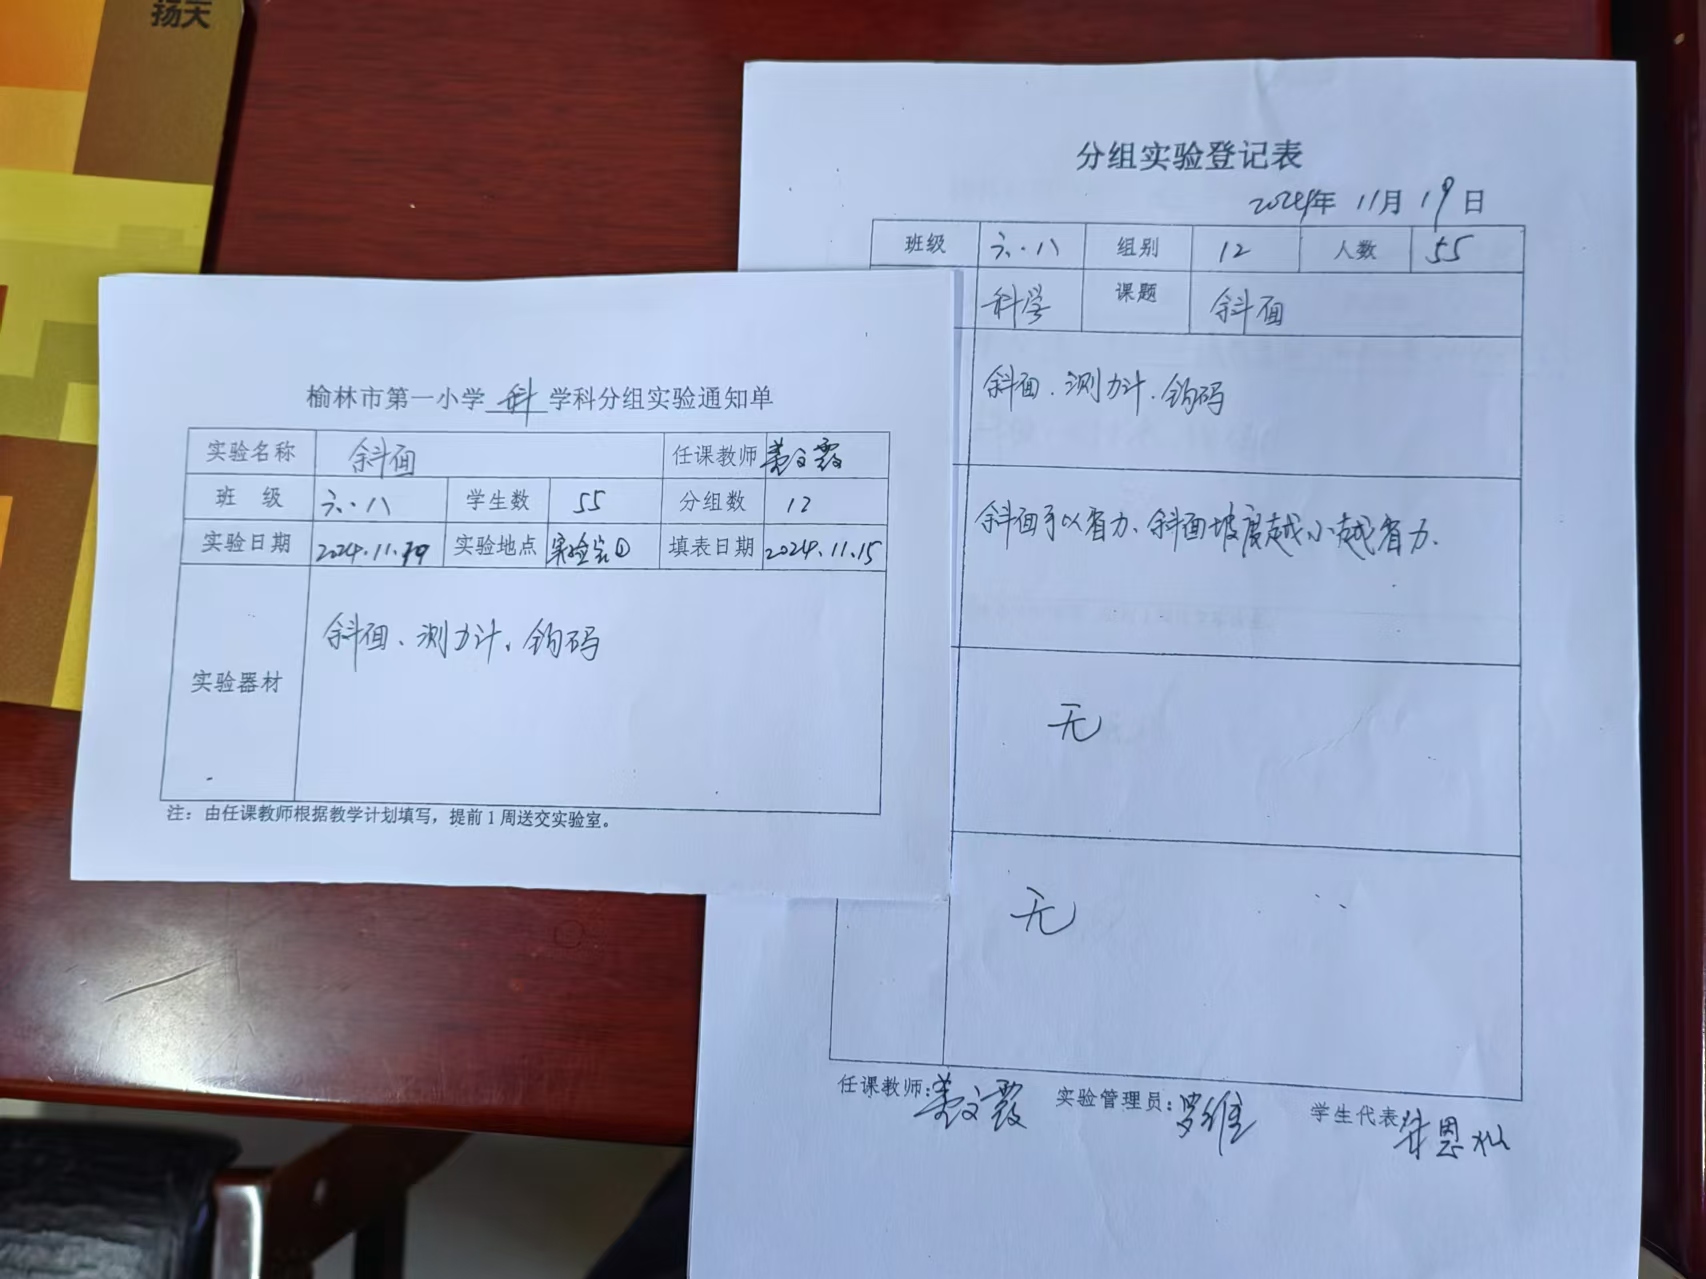 扬天
榆林市第一小学 科 学科分组实验通知单
实验名称 斜面 任课教师 姜文霞
班 级 六.八 学生数 55 分组数 12
实验日期 2024.11.19 实验地点 实验室① 填表日期 2024.11.15
实验器材 斜面、测力计、钩码
注：由任课教师根据教学计划填写，提前1周送交实验室。
分组实验登记表
2024年 11月 19日
班级 六.八 组别 12 人数 55
科学 课题 斜面
斜面、测力计、钩码
斜面可以省力、斜面坡度越小越省力.
无
无
任课教师：姜文霞 实验管理员：罗维 学生代表